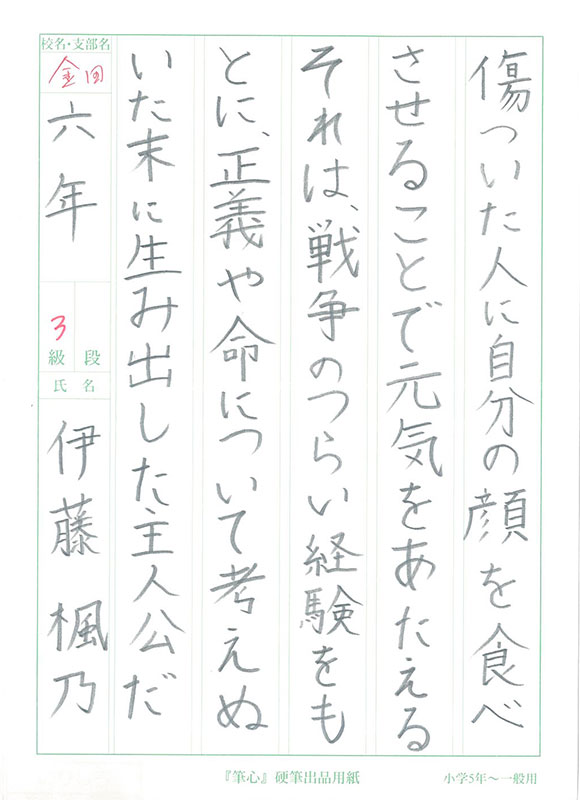 傷ついた人に自分の顔を食べ
させることで元気をあたえる
それは、戦争のつらい経験をも
とに、正義や命について考えぬ
いた末に生み出した主人公だ
校名・支部名
金田
六年
3
級 段
氏名
伊藤 楓乃
『筆心』硬筆出品用紙
小学5年～一般用